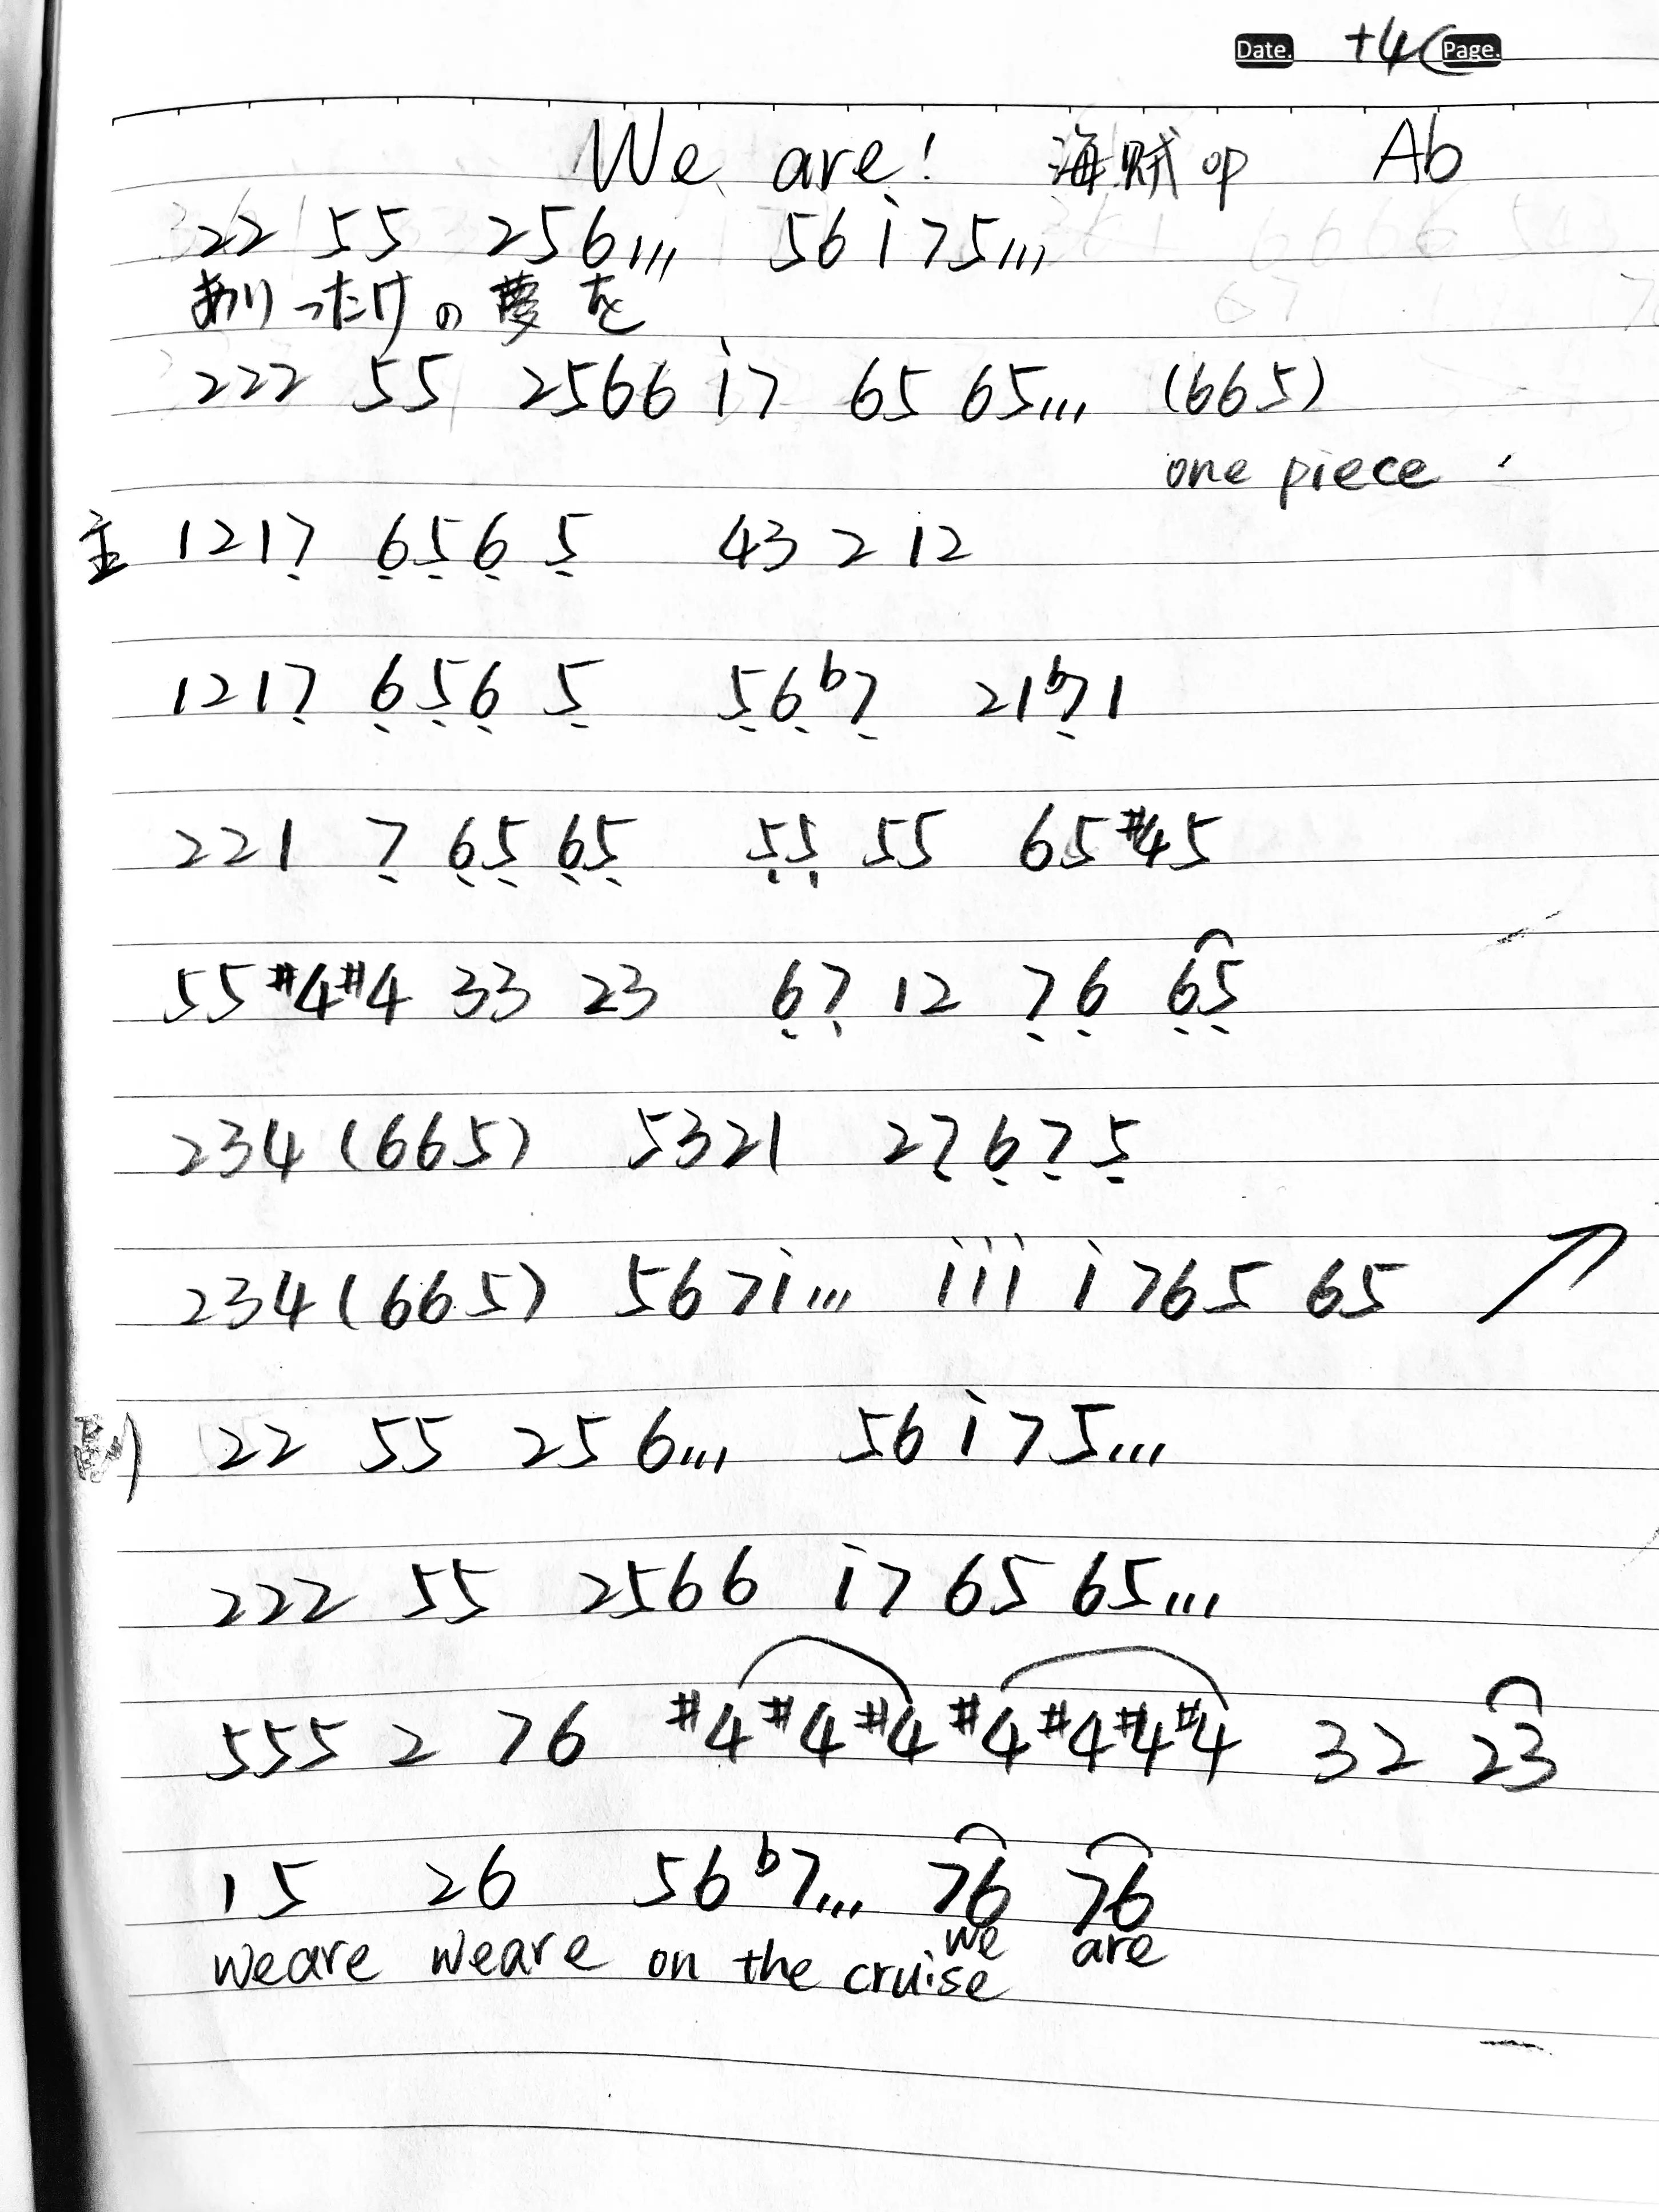 Date. +4( Page.
We are! 海贼op Ab
22 55 256... 561̇75...
ありったけの夢を
222 55 2566 1̇7 65 65... (665)
one piece
主 1217̣ 6̣5̣6̣ 5̣ 43 2 12
1217̣ 6̣5̣6̣ 5̣ 5̣6̣b7̣ 21b7̣1
221 7̣ 6̣5̣ 6̣5̣ 5̣5̣ 55 65#45
55#4#4 33 23 6̣7̣ 12 7̣6̣ 6̣5̣
234 (665) 5321 27̣6̣7̣5̣
234 (665) 5671̇... 1̇1̇1̇ 1̇765 65
副 22 55 256... 561̇75...
222 55 2566 1̇7 65 65...
555 2 76 #4#4#4 #4#4#4#4 32 23
15 26 56b7... 76 76
weare weare on the cruise we are